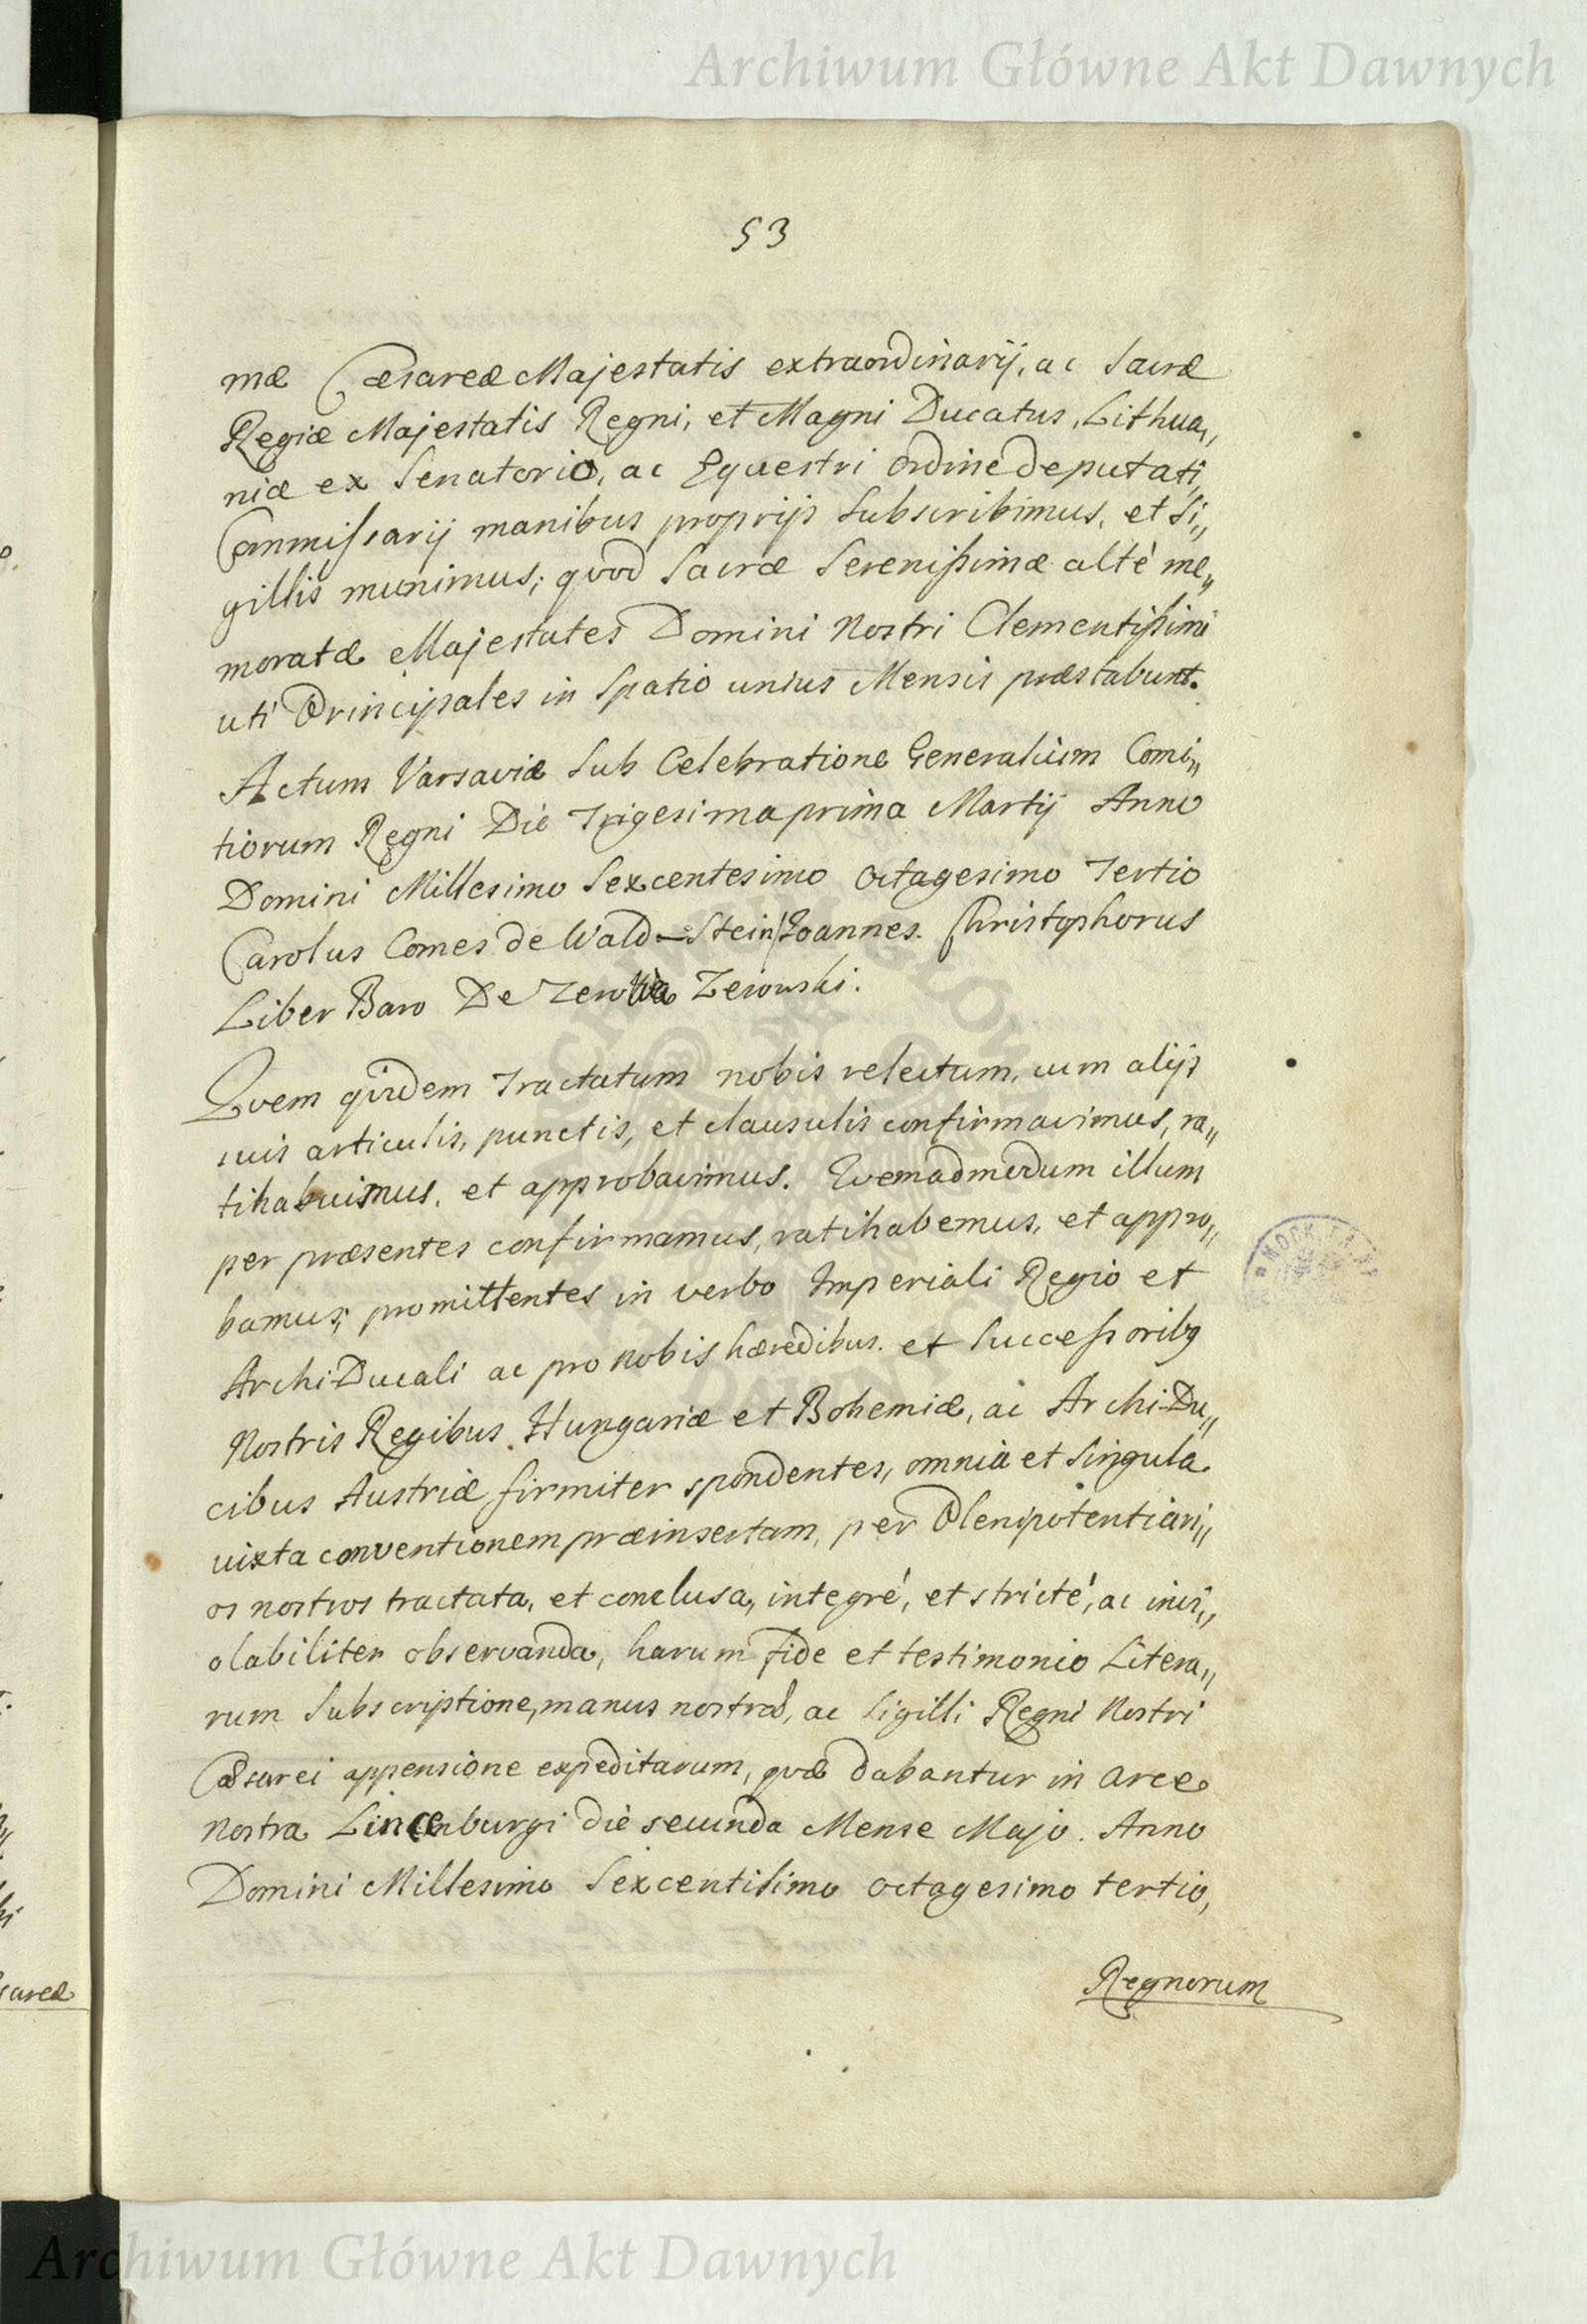 Archiwum Główne Akt Dawnych
53
mæ Cæsareæ Majestatis extraordinarij, ac Sacræ
Regiæ Majestatis Regni, et Magni Ducatus, Lithua„
niæ ex Senatorio, ac Equestri Ordine deputati,
Commissarij manibus proprijs Subscribimus, et Si„
gillis munimus; quod Sacræ Serenissimæ altè me„
moratæ Majestates Domini Nostri Clementissimi
uti Principales in Spatio unius Mensis præstabunt.
Actum Varsaviæ Sub Celebratione Generalium Comi„
tiorum Regni Die Trigesima prima Martij Anno
Domini Millesimo Sexcentesimo Octagesimo Tertio
Carolus Comes de Wald-Stein Joannes. Christophorus
Liber Baro De Zerowski.
Quem quidem Tractatum nobis relectum, cum alijs
suis articulis, punctis, et clausulis confirmavimus, ra„
tihabuimus, et approbavimus. Quemadmodum illum
per præsentes confirmamus, ratihabemus, et appro„
bamus; promittentes in verbo Imperiali Regio et
Archi-Ducali ac pro nobis hæredibus. et Successoribq
Nostris Regibus Hungariæ et Bohemiæ, ac Archi-Du„
cibus Austriæ firmiter spondentes, omnia et Singula
iuxta conventionem præinsertam, per Plenipotentiari„
os nostros tractata, et conclusa, integré, et stricté, ac invi„
olabiliter observanda, harum fide et testimonio Litera„
rum Subscriptione, manus nostræ, ac Sigilli Regni Nostri
Cæsarei appensione expeditarum, quæ dabantur in Arce
Nostra Lincenburgi die secunda Mense Majo. Anno
Domini Millesimo Sexcentisimo octagesimo tertio,
Regnorum
Archiwum Główne Akt Dawnych